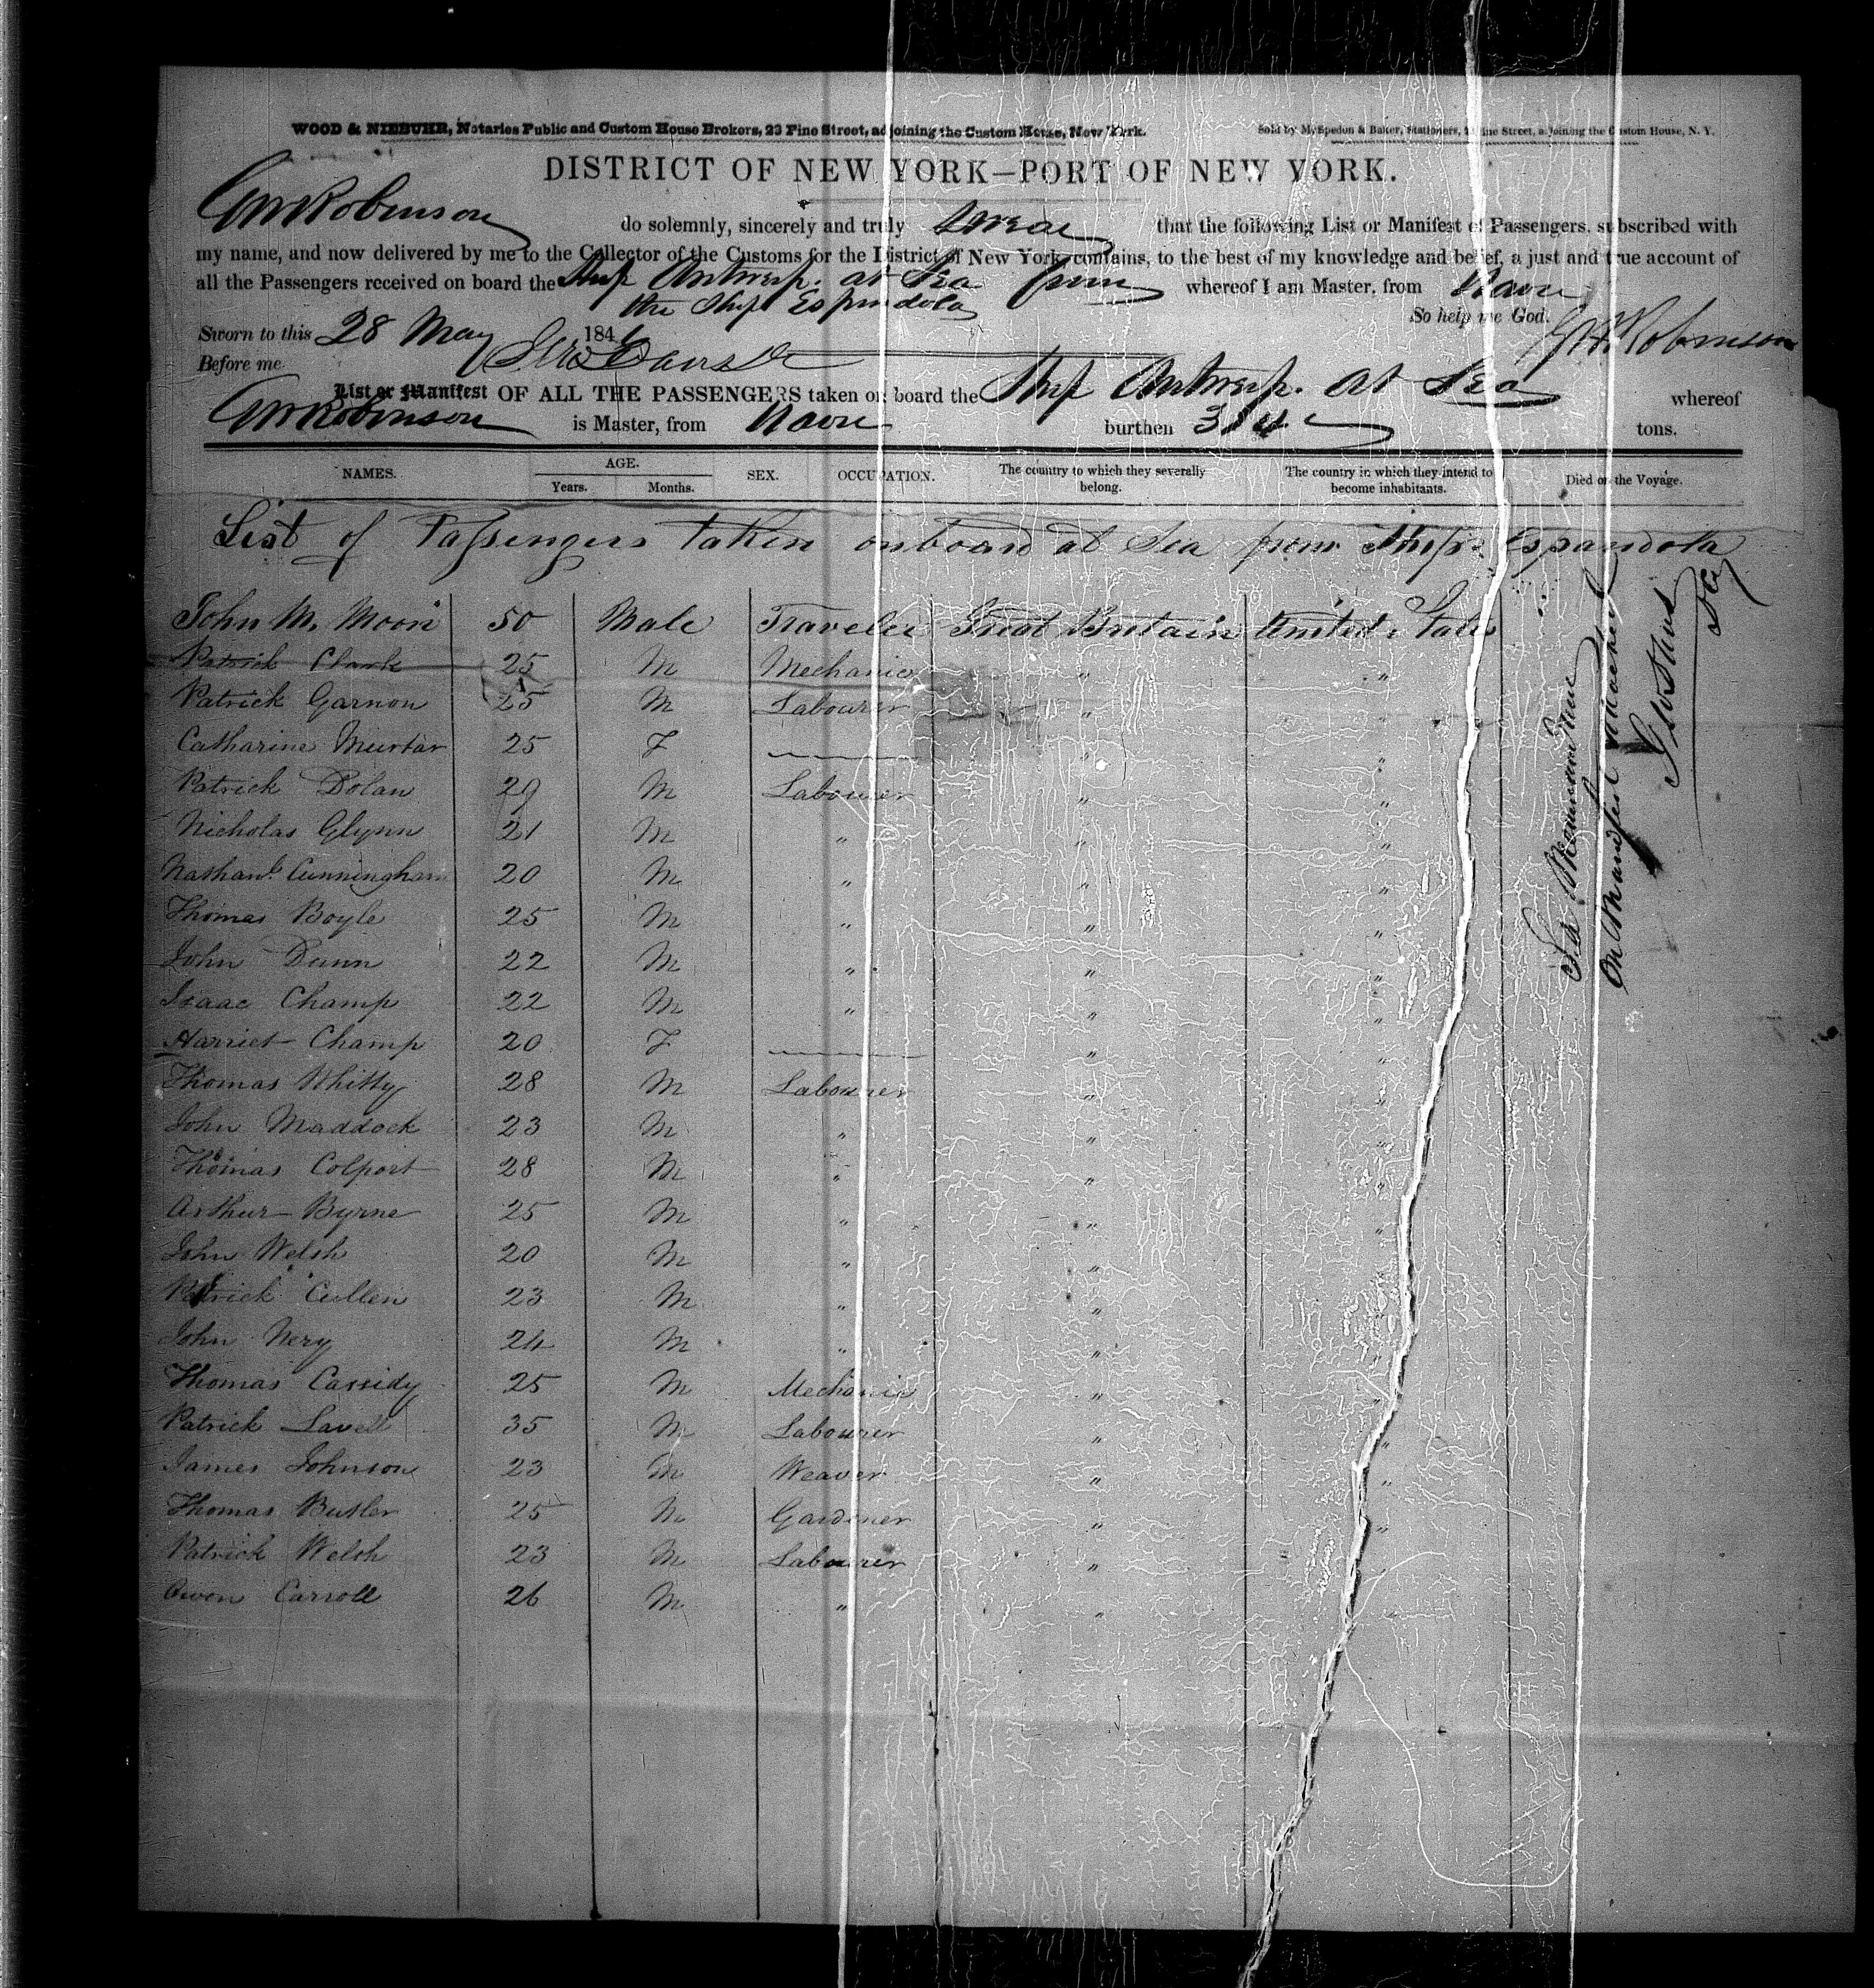 WOOD & NIEBUHR, Notaries Public and Custom House Brokers, 23 Pine Street, adjoining the Custom House, New York.
Sold by McSpedon & Baker, Stationers, Pine Street, adjoining the Custom House, N. Y.
DISTRICT OF NEW YORK—PORT OF NEW YORK.
GWRobinson do solemnly, sincerely and truly swear that the following List or Manifest of Passengers, subscribed with
my name, and now delivered by me to the Collector of the Customs for the District of New York, contains, to the best of my knowledge and belief, a just and true account of
all the Passengers received on board the Ship Antwerp. at Sea from whereof I am Master, from Havre
the Ship Espindola
So help me God.
Sworn to this 28 May 1846 GWRobinson
Before me
List or Manifest OF ALL THE PASSENGERS taken on board the Ship Antwerp. at Sea whereof
GWRobinson is Master, from Havre burthen tons.
NAMES. AGE. Years. Months. SEX. OCCUPATION. The country to which they severally belong. The country in which they intend to become inhabitants. Died on the Voyage.
List of Passengers taken onboard at Sea from Ship Espandola
John M. Moon 50 Male Traveler Great Britain United States
Patrick Clark 25 M Mechanic " "
Patrick Garnon 25 M Labourer "
Catharine Murtar 25 F — " "
Patrick Dolan 29 M Labourer " "
Nicholas Glynn 21 M " " "
Nathanl. Cunningham 20 M " " "
Thomas Boyle 25 M " " "
John Dunn 22 M " " "
Isaac Champ 22 M " " "
Harriet Champ 20 F — " "
Thomas Whitty 28 M Labourer " "
John Maddock 23 M " " "
Thomas Colport 28 M " " "
Arthur Byrne 25 M " " "
John Welsh 20 M " " "
Patrick Cullen 23 M " " "
John Nery 24 M " "
Thomas Cassidy 25 M Mechanic " "
Patrick Lavell 35 M Labourer " "
James Johnson 23 M Weaver " "
Thomas Butler 25 M Gardener " "
Patrick Welsh 23 M Labourer "
Owen Carroll 26 M " "
on Manifest